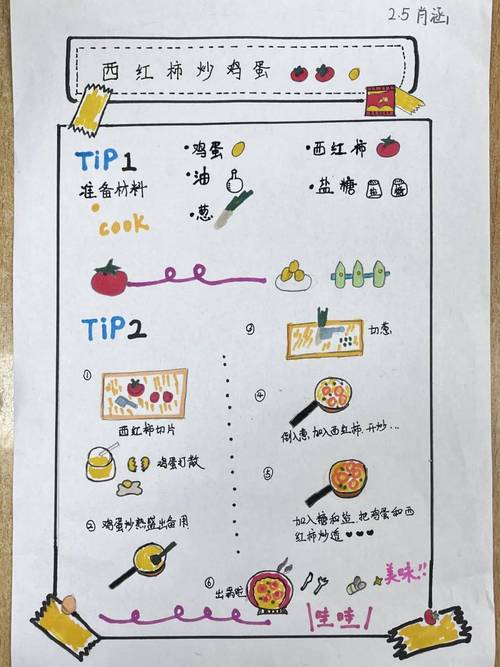 2.5 肖涵
西红柿炒鸡蛋
TiP1
准备材料
cook
·鸡蛋
·油
·葱
·西红柿
·盐 糖
TiP2
①
西红柿切片
鸡蛋打散
②鸡蛋炒熟盛出备用
③
切葱
④
倒入葱,加入西红柿.开炒...
⑤
加入糖和盐.把鸡蛋和西
红柿炒透
⑥ 出锅啦
哇哇
美味!!